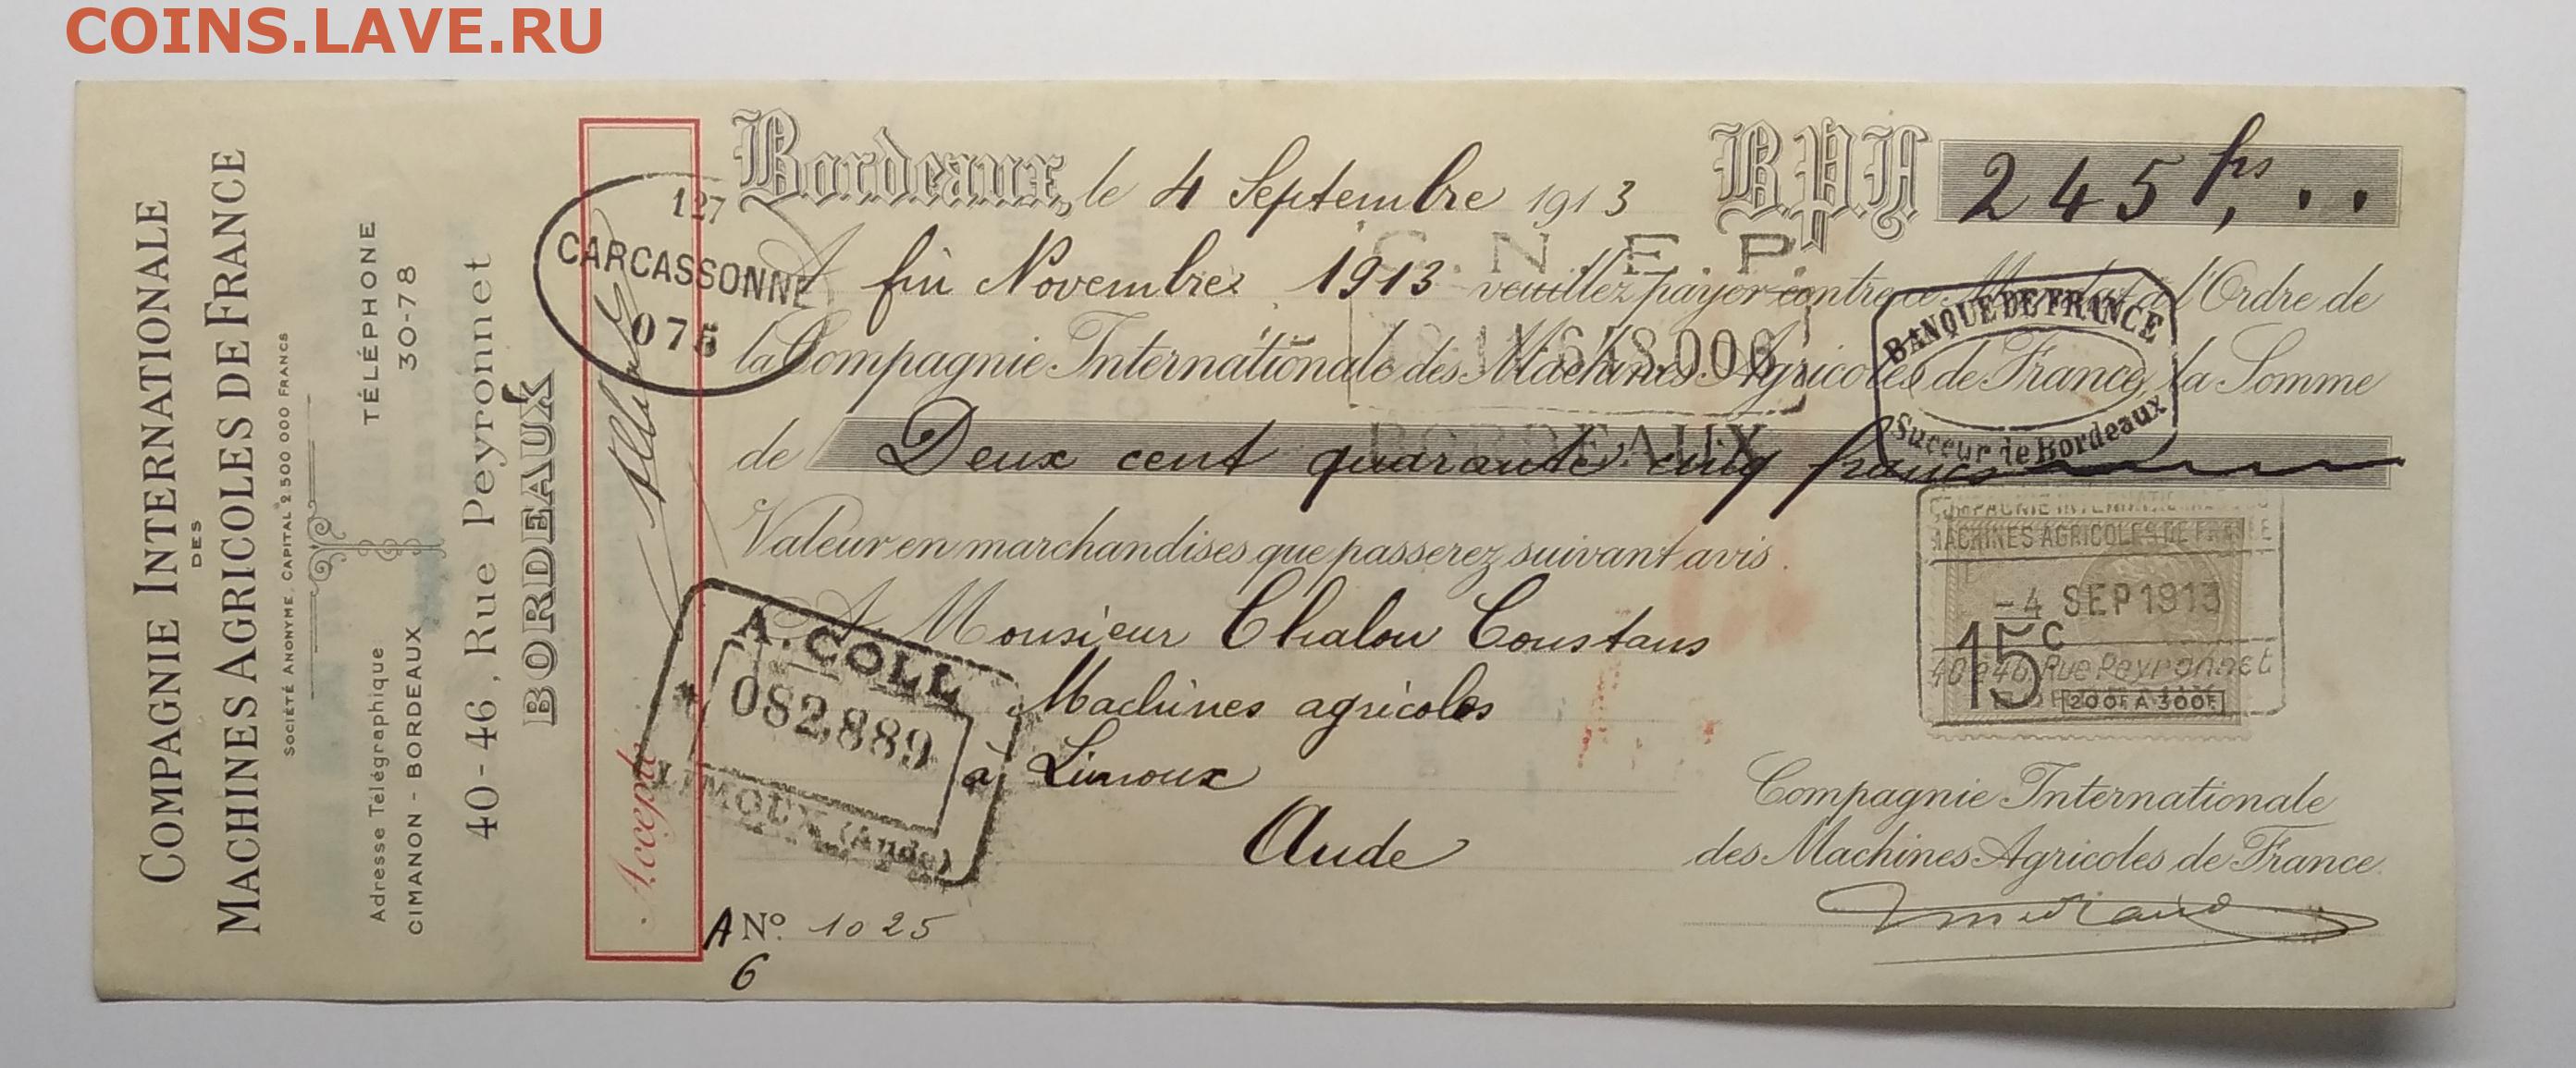 COINS.LAVE.RU
COMPAGNIE INTERNATIONALE
DES
MACHINES AGRICOLES DE FRANCE
SOCIÉTÉ ANONYME, CAPITAL 2 500 000 FRANCS
TÉLÉPHONE
30-78
Adresse Télégraphique
CIMANON - BORDEAUX
40-46, Rue Peyronnet
BORDEAUX
Accepté
127
CARCASSONNE
075
Bordeaux, le 4 Septembre 1913 B.P.F. 245 frs, ..
C.N.E.P.
A fin Novembre 1913 veuillez payer contre ce Mandat à l'Ordre de
la Compagnie Internationale des Machines Agricoles de France, la Somme
BORDEAUX
BANQUE DE FRANCE
Succur de Bordeaux
de Deux cent quarante cinq francs
Valeur en marchandises que passerez suivant avis.
COMPAGNIE INTERNATIONALE DES
MACHINES AGRICOLES DE FRANCE
-4 SEP 1913
15c
40 à 46, Rue Peyronnet
200F A 300F
A Monsieur Chalou Coustans
Machines agricoles
à Limoux
Aude
A. COLL
082,889
LIMOUX (Aude)
Compagnie Internationale
des Machines Agricoles de France.
A No. 1025
6